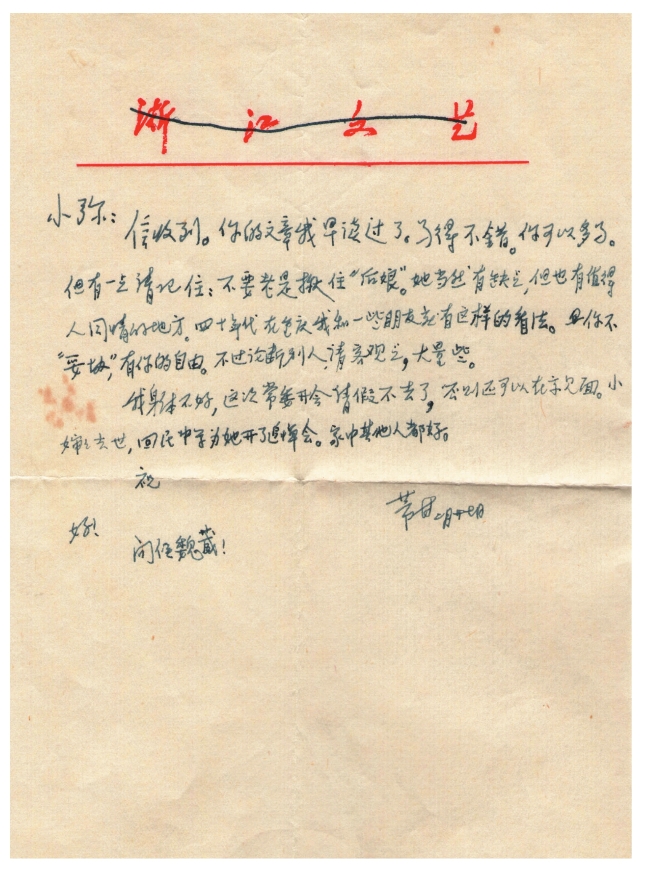 浙江文艺
小弥：信收到。你的文章我早读过了。写得不错。你可以多写。
但有一点请记住：不要老是揪住“后娘”。她当然有缺点，但也有值得
人同情的地方。四十年代在重庆我和一些朋友就有这样的看法。你不
“妥协”，有你的自由。不过论断别人，请客观点，大量些。
我身体不好，这次常委开会请假不去了，否则还可以在京见面。小
婶婶去世，回民中学为她开了追悼会。家中其他人都好。
祝
好！
芾甘 二月廿七日
问候魏葳！